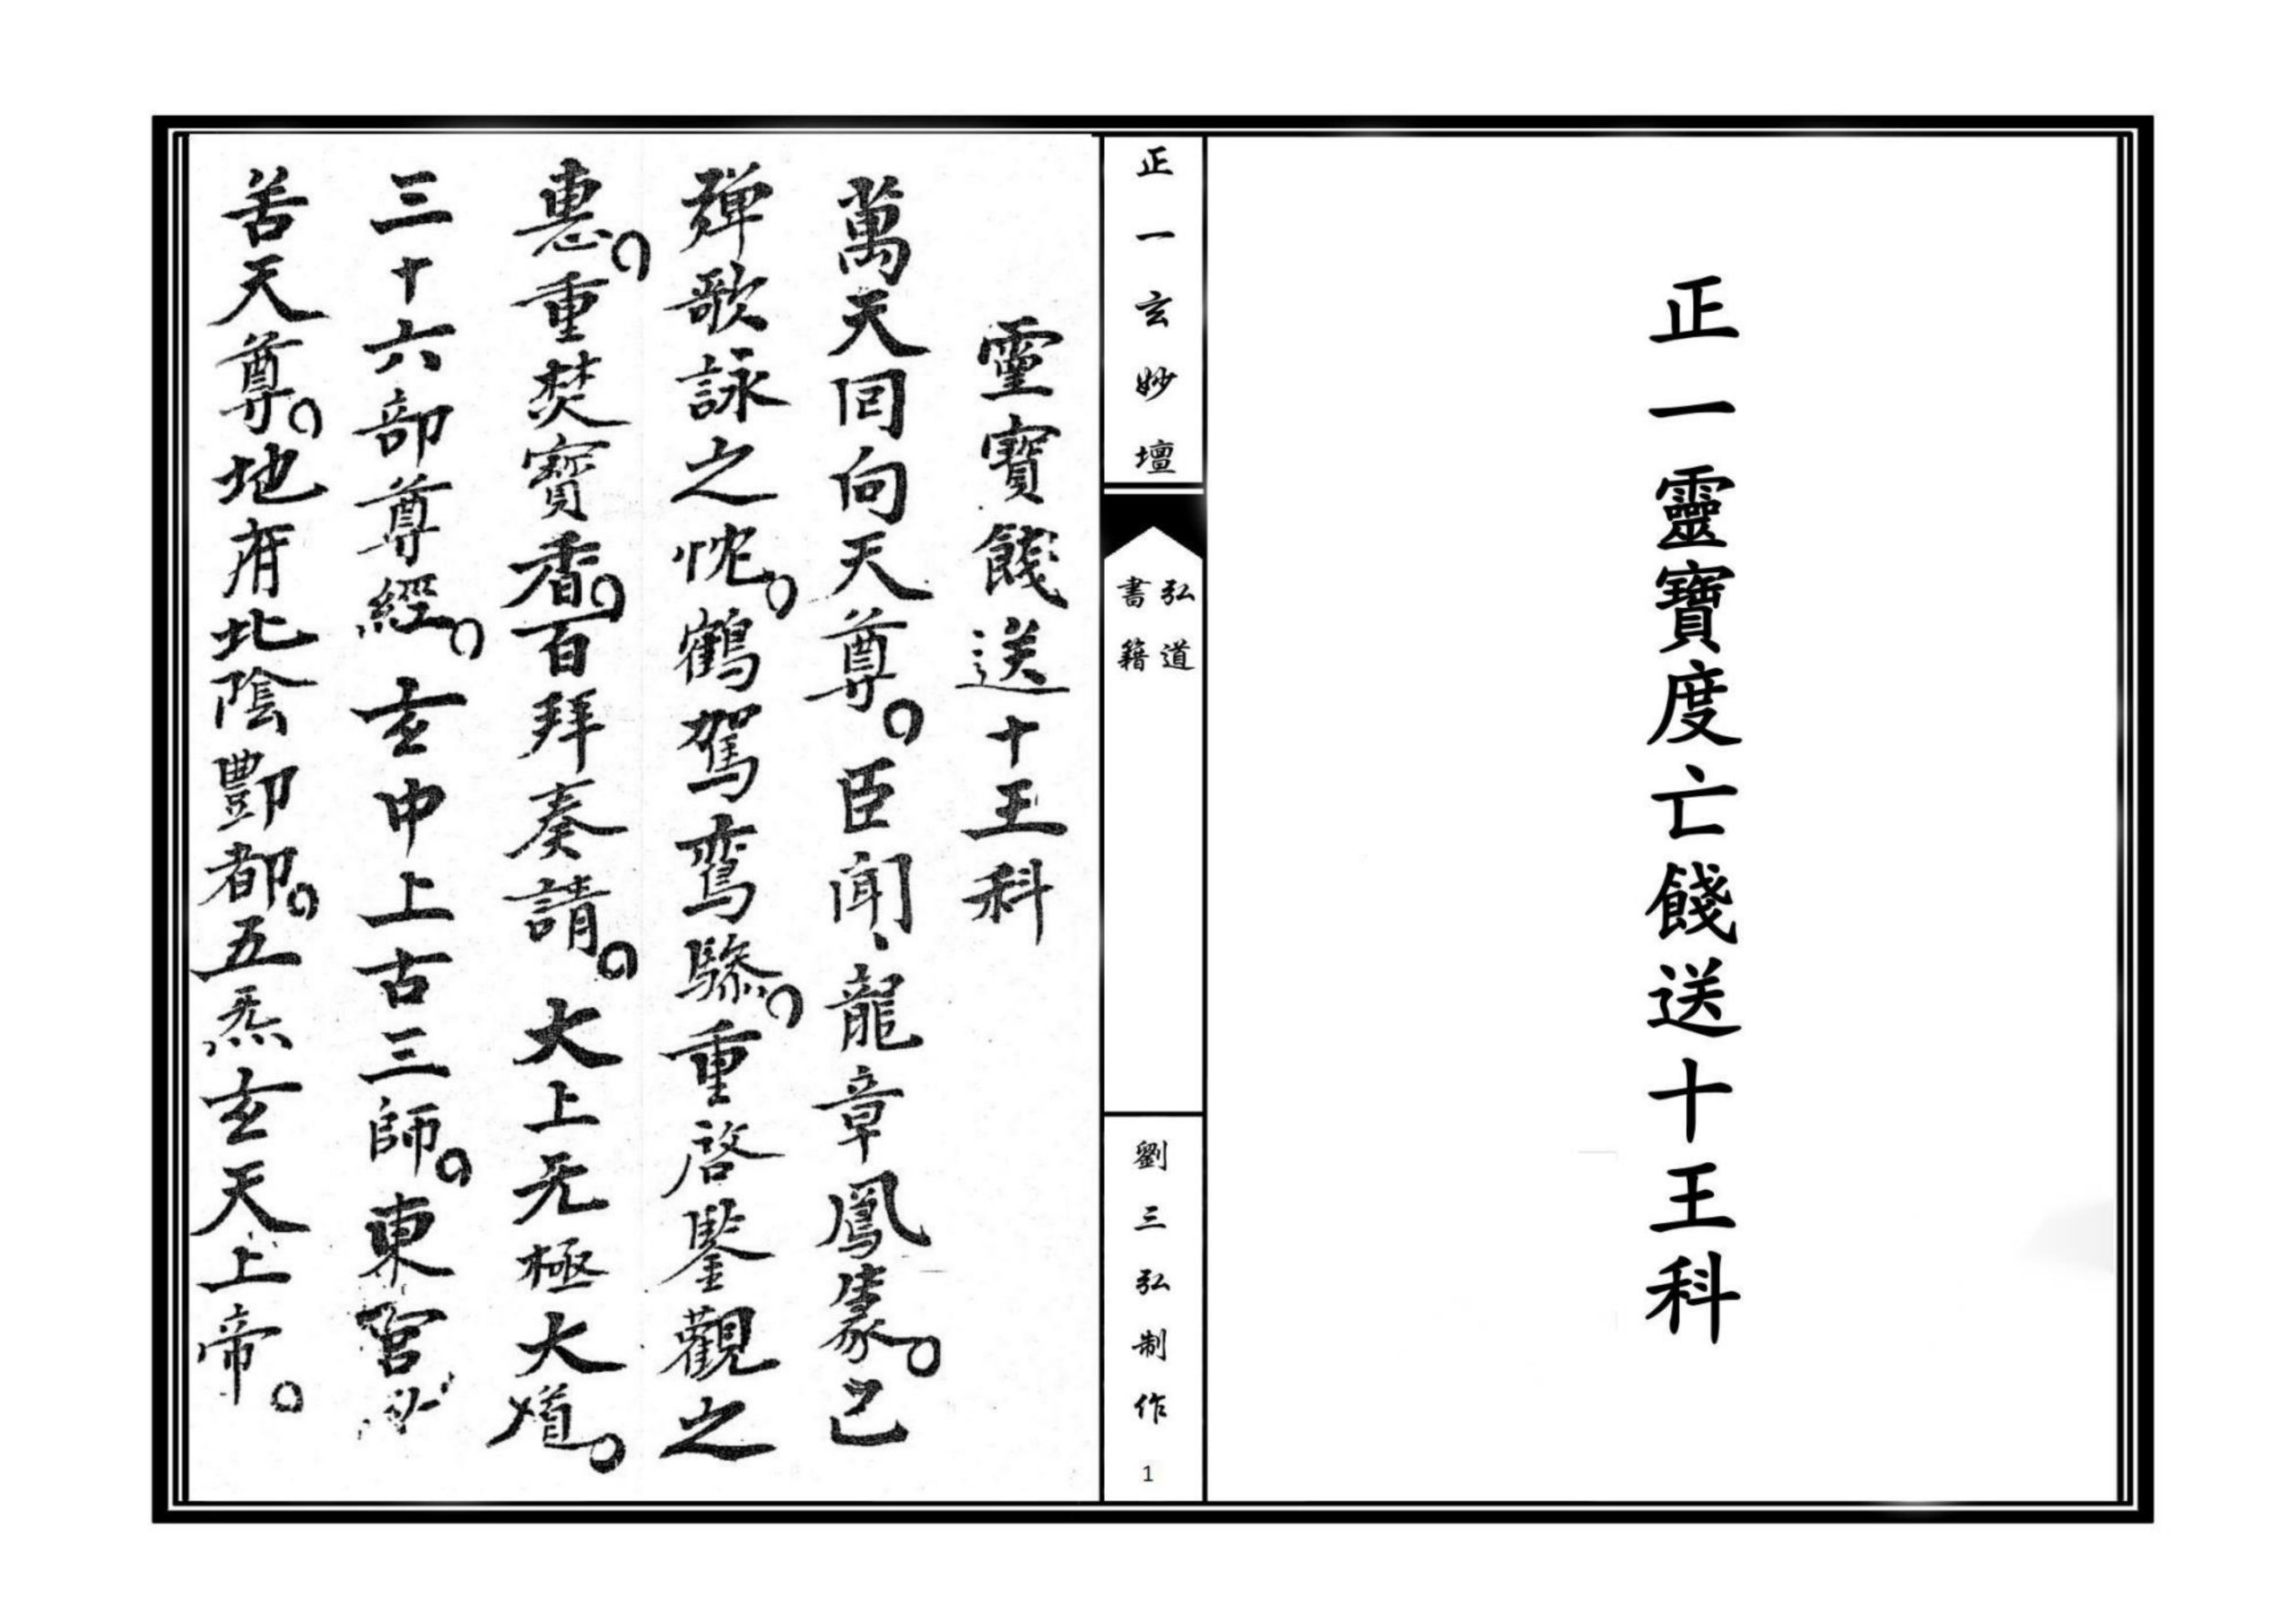 正一靈寶度亡餞送十王科
正一玄妙壇
弘道
書籍
劉三弘制作
1
靈寶餞送十王科
萬天回向天尊。臣聞、龍章鳳篆。已
殫歌詠之忱。鶴駕鸞驂。重啓鑒觀之
惠。重焚寶香。百拜奏請。大上无極大道。
三十六部尊經。玄中上古三師。東宮
苦天尊。地府北陰酆都。五炁玄天上帝。